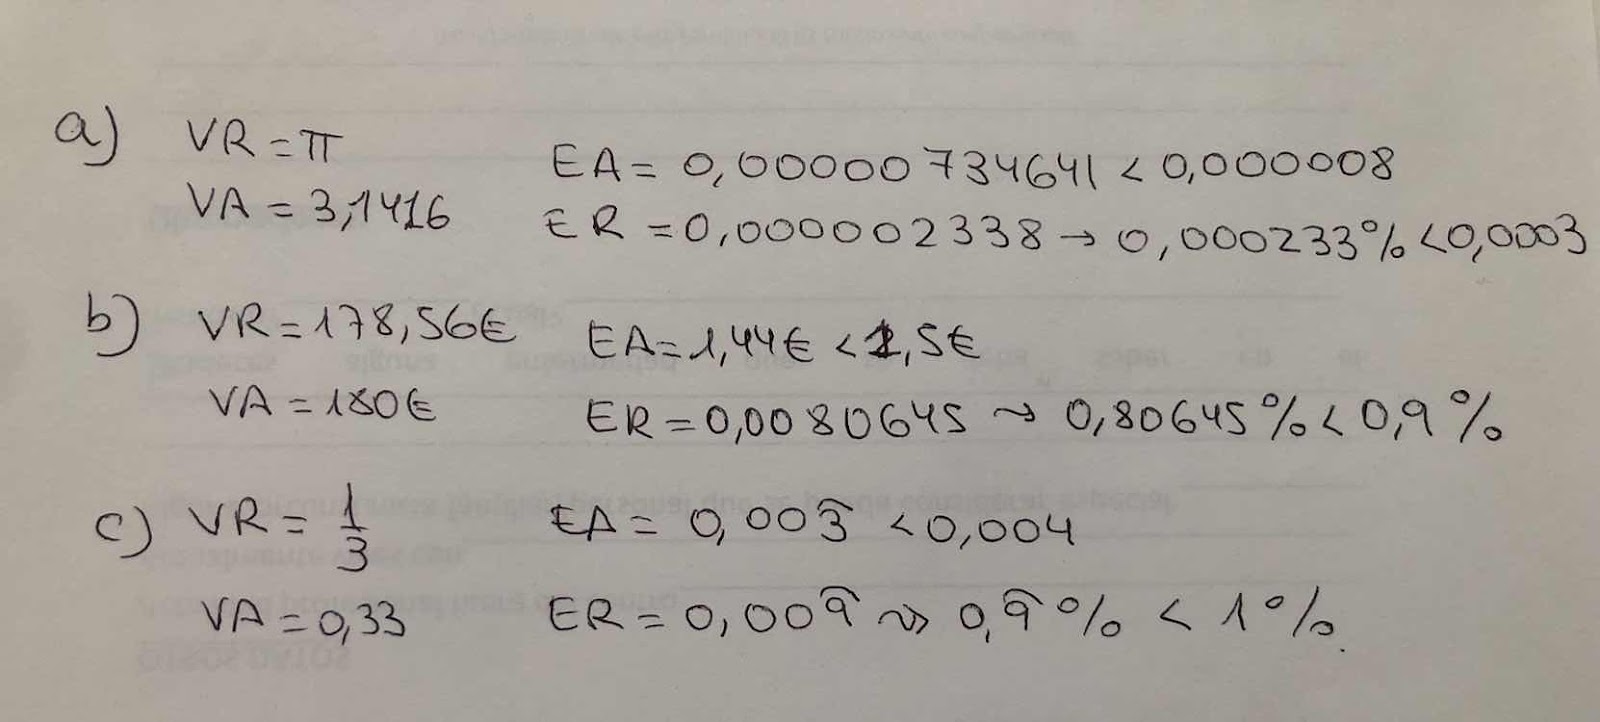 a) VR = π
EA = 0,00000734641 < 0,000008
VA = 3,1416
ER = 0,000002338 → 0,000233% < 0,0003
b) VR = 178,56€
EA = 1,44€ < 1,5€
VA = 180€
ER = 0,0080645 → 0,80645% < 0,9%
c) VR = 1/3
EA = 0,003̂ < 0,004
VA = 0,33
ER = 0,009̂ → 0,9̂% < 1%.